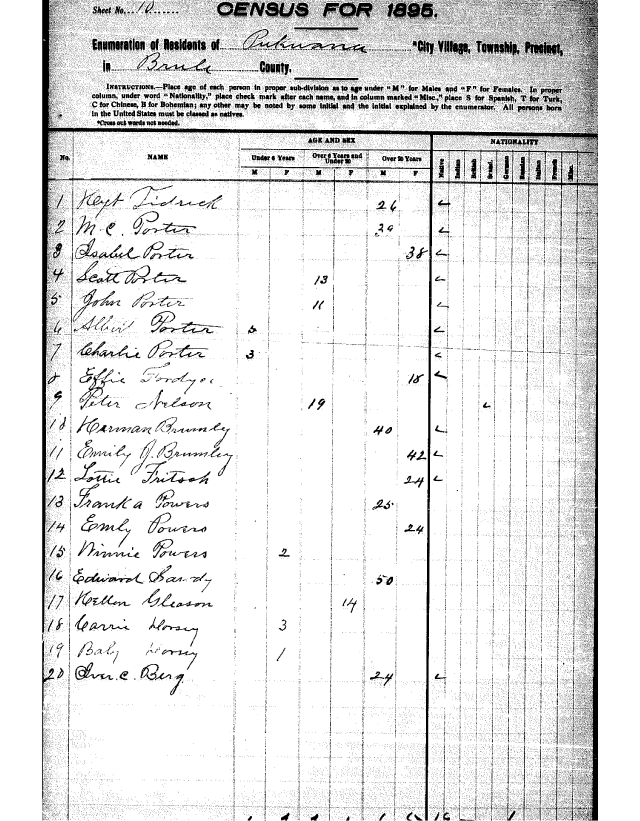 Sheet No. 10
CENSUS FOR 1895.
Enumeration of Residents of Pukwana *City Village, Township, Precinct,
in Brule County.
INSTRUCTIONS.—Place age of each person in proper sub-division as to age under "M" for Males and "F" for Females. In proper
column, under word "Nationality," place check mark after each name, and in column marked "Misc.," place S for Spanish, T for Turk,
C for Chinese, B for Bohemian; any other may be noted by some initial and the initial explained by the enumerator. All persons born
in the United States must be classed as natives.
*Cross out words not needed.
AGE AND SEX NATIONALITY
No. NAME Under 6 Years Over 6 Years and Under 20 Over 20 Years
M F M F M F
1 Tidrick 26
2 M. C. Porter 39
3 Isabel Porter 38
4 Scott Porter 13
5 John Porter 11
6 Porter 5
7 Charlie Porter 3
8 Effie Fordyce 18
9 Peter Nelson 19
10 Herman Brumley 40
11 Emily J. Brumley 42
12 Lottie Fritsch 24
13 Frank a Powers 25
14 Emly Powers 24
15 Winnie Powers 2
16 Edward 50
17 Hellen Gleason 14
18 Carrie Dorsey 3
19 Baby Dorsey 1
20 Iver C. Berg 24